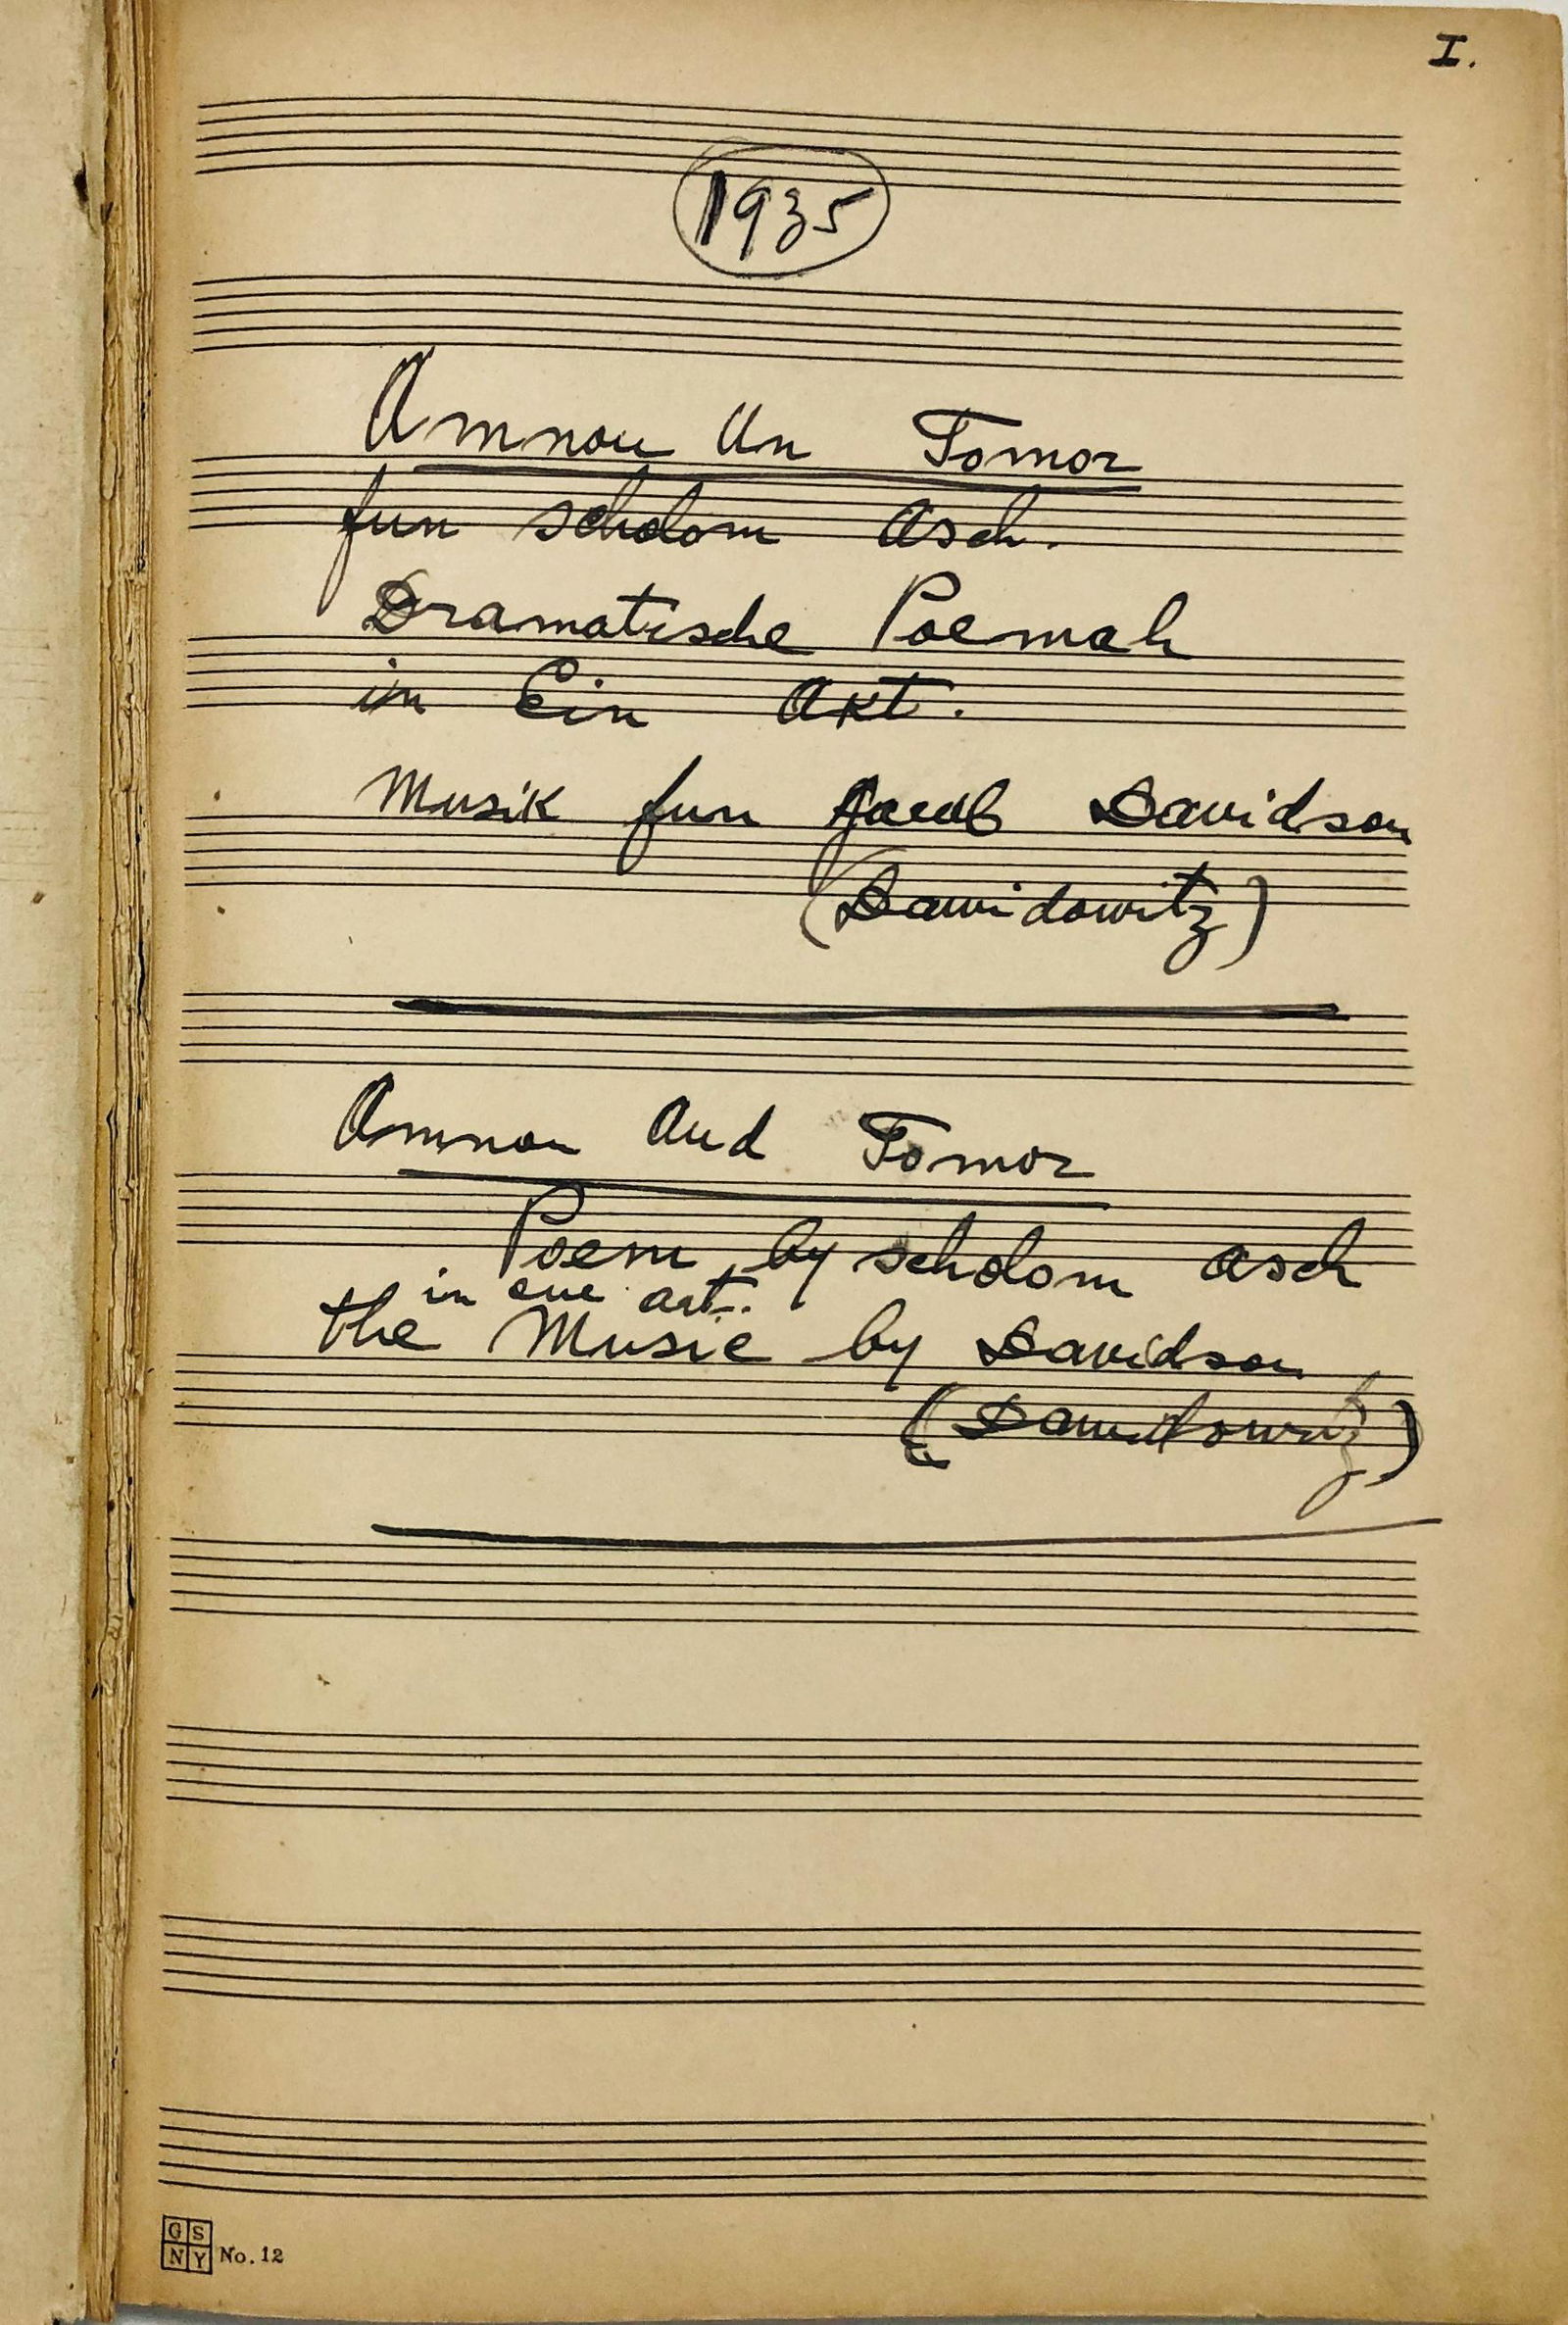 I.
1935
Amnon Un Tomor
fun scholom Asch.
Dramatische Poemah
in Ein Akt.
Musik fun Jacob Davidson
(Dawidowitz)
Amnon And Tomor
Poem by scholom Asch
in one act.
the Music by Davidson
(Dawidowitz)
GS
NY No. 12